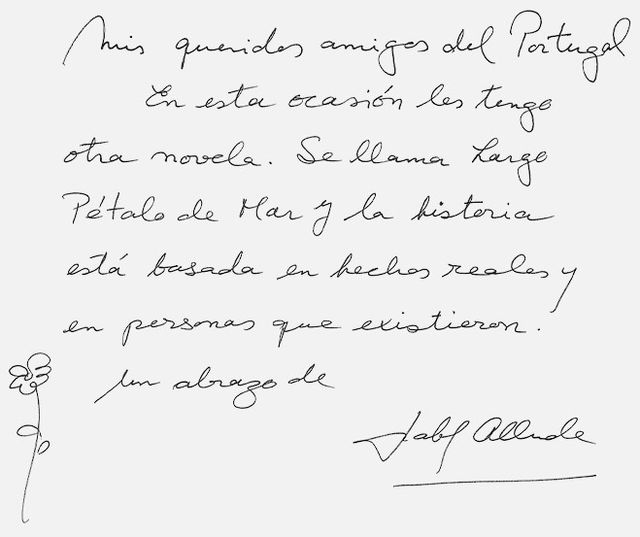 Mis queridos amigos del Portugal
En esta ocasión les tengo
otra novela. Se llama Largo
Pétalo de Mar y la historia
está basada en hechos reales y
en personas que existieron.
Un abrazo de
Isabel Allende